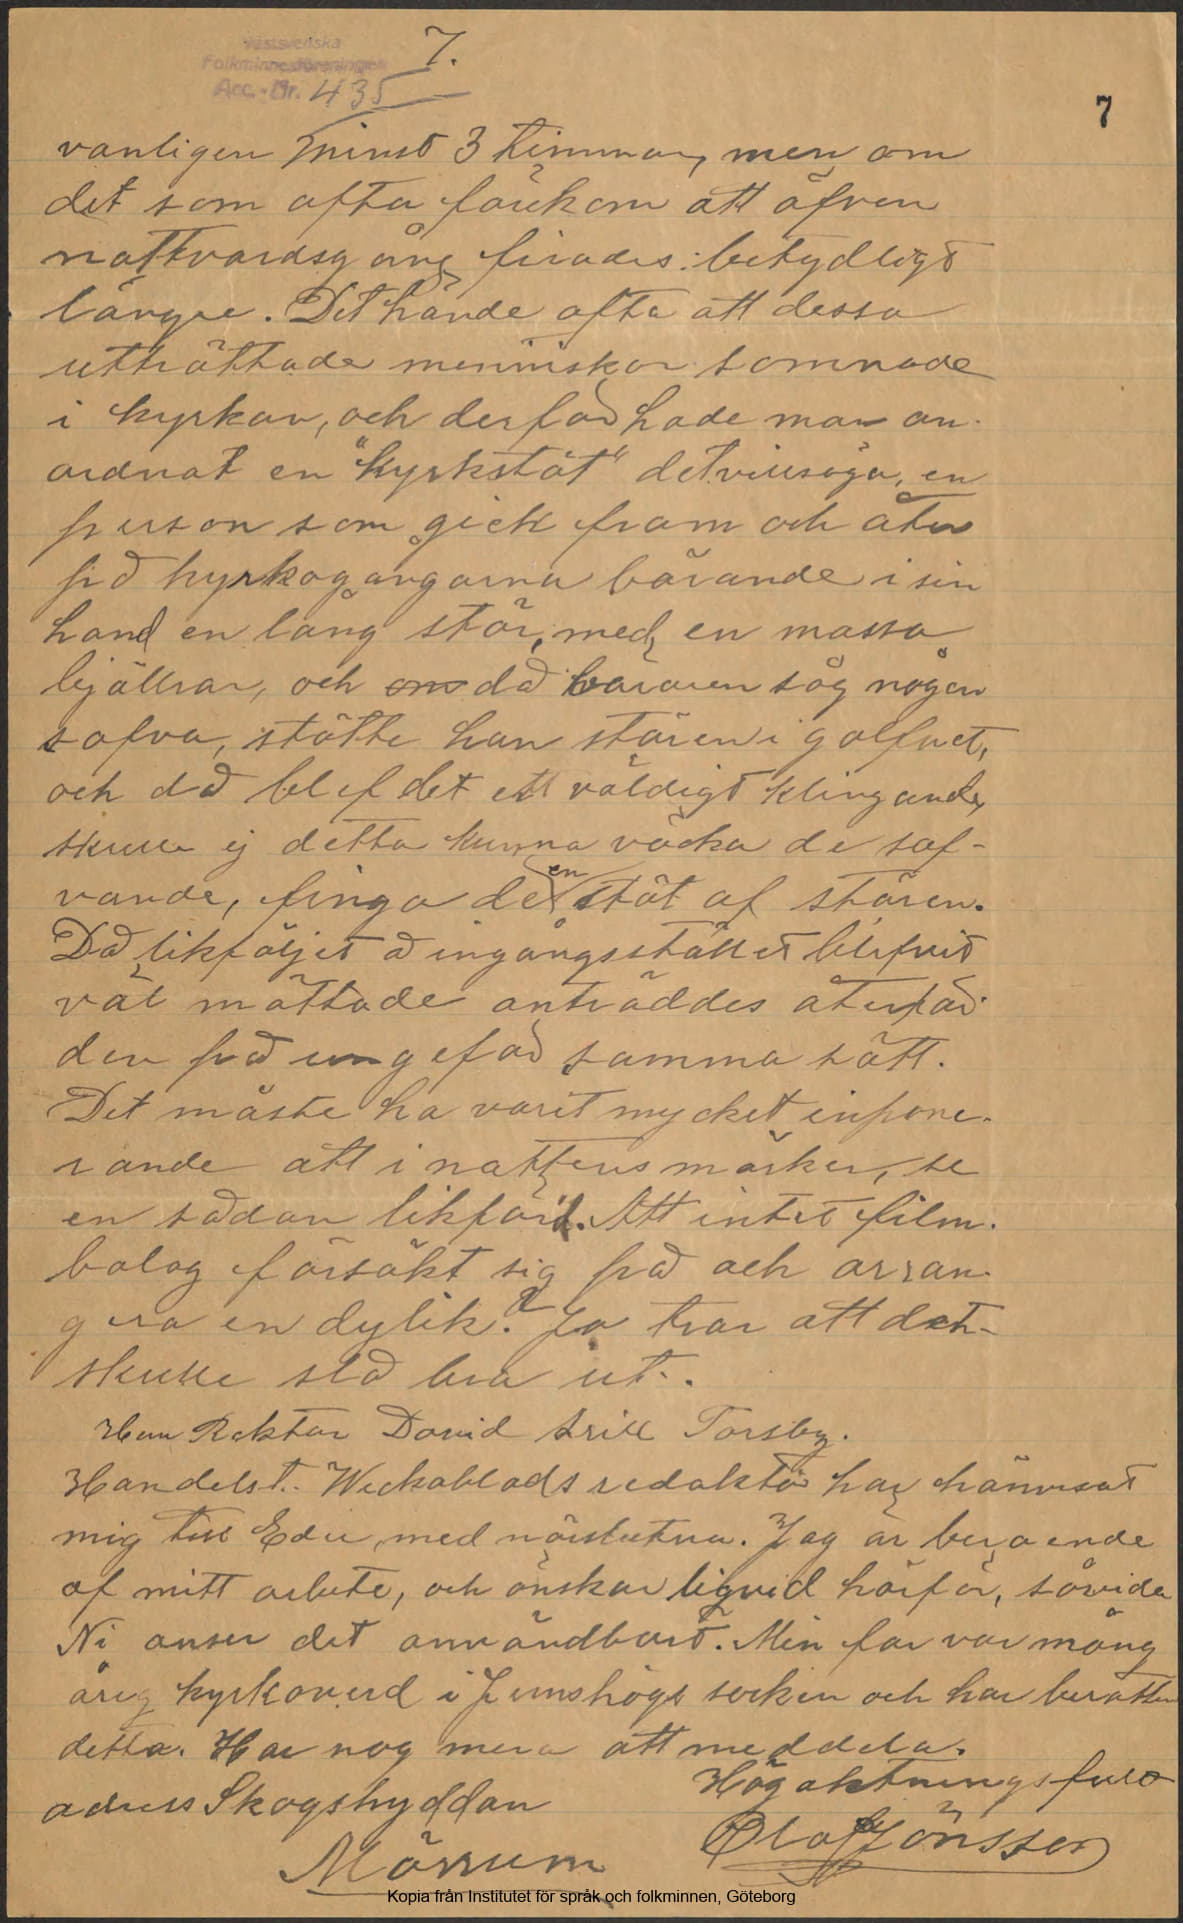 7.
Västsvenska
Folkminnesföreningen
Acc. Nr. 435
7
vanligen minst 3 timmar, men om
det som ofta förekom att äfven
nattvardsgång firades: betydligt
längre. Det hände ofta att dessa
uttröttade menniskor somnade
i kyrkan, och derför hade man an-
ordnat en "kyrkstöt" det vill säga, en
person som gick fram och åter
på kyrkogångarna bärande i sin
hand en lång stör, med en massa
bjällrar, och om då bäraren såg någon
sofva, stötte han stören i golfvet,
och då blef det ett väldigt klingande,
skulle ej detta kunna väcka de sof-
vande, fingo de en stöt af stören.
Då likföljet å ingångsstället blifvit
väl mättade anträddes återfär-
den på ungefär samma sätt.
Det måste ha varit mycket impone-
rande att i nattens mörker, se
en sådan likfärd. Att intet film-
bolag försökt sig på och arran-
gera en dylik? Ja tror att det
skulle slå bra ut.
Herr Rektor David Arill Torsby.
Handelst. Veckoblads redaktör har hänvisat
mig till Eder, med närslutna. Jag är beroende
af mitt arbete, och önskar liqvid härför, såvida
Ni anser det användbart. Min far var mång
årig kyrkovärd i Jemshögs socken och har berättat
detta. Har nog mera att meddela.
Högaktningsfullt
adress Skogshyddan
Olof Jönsson
Mörrum
Kopia från Institutet för språk och folkminnen, Göteborg